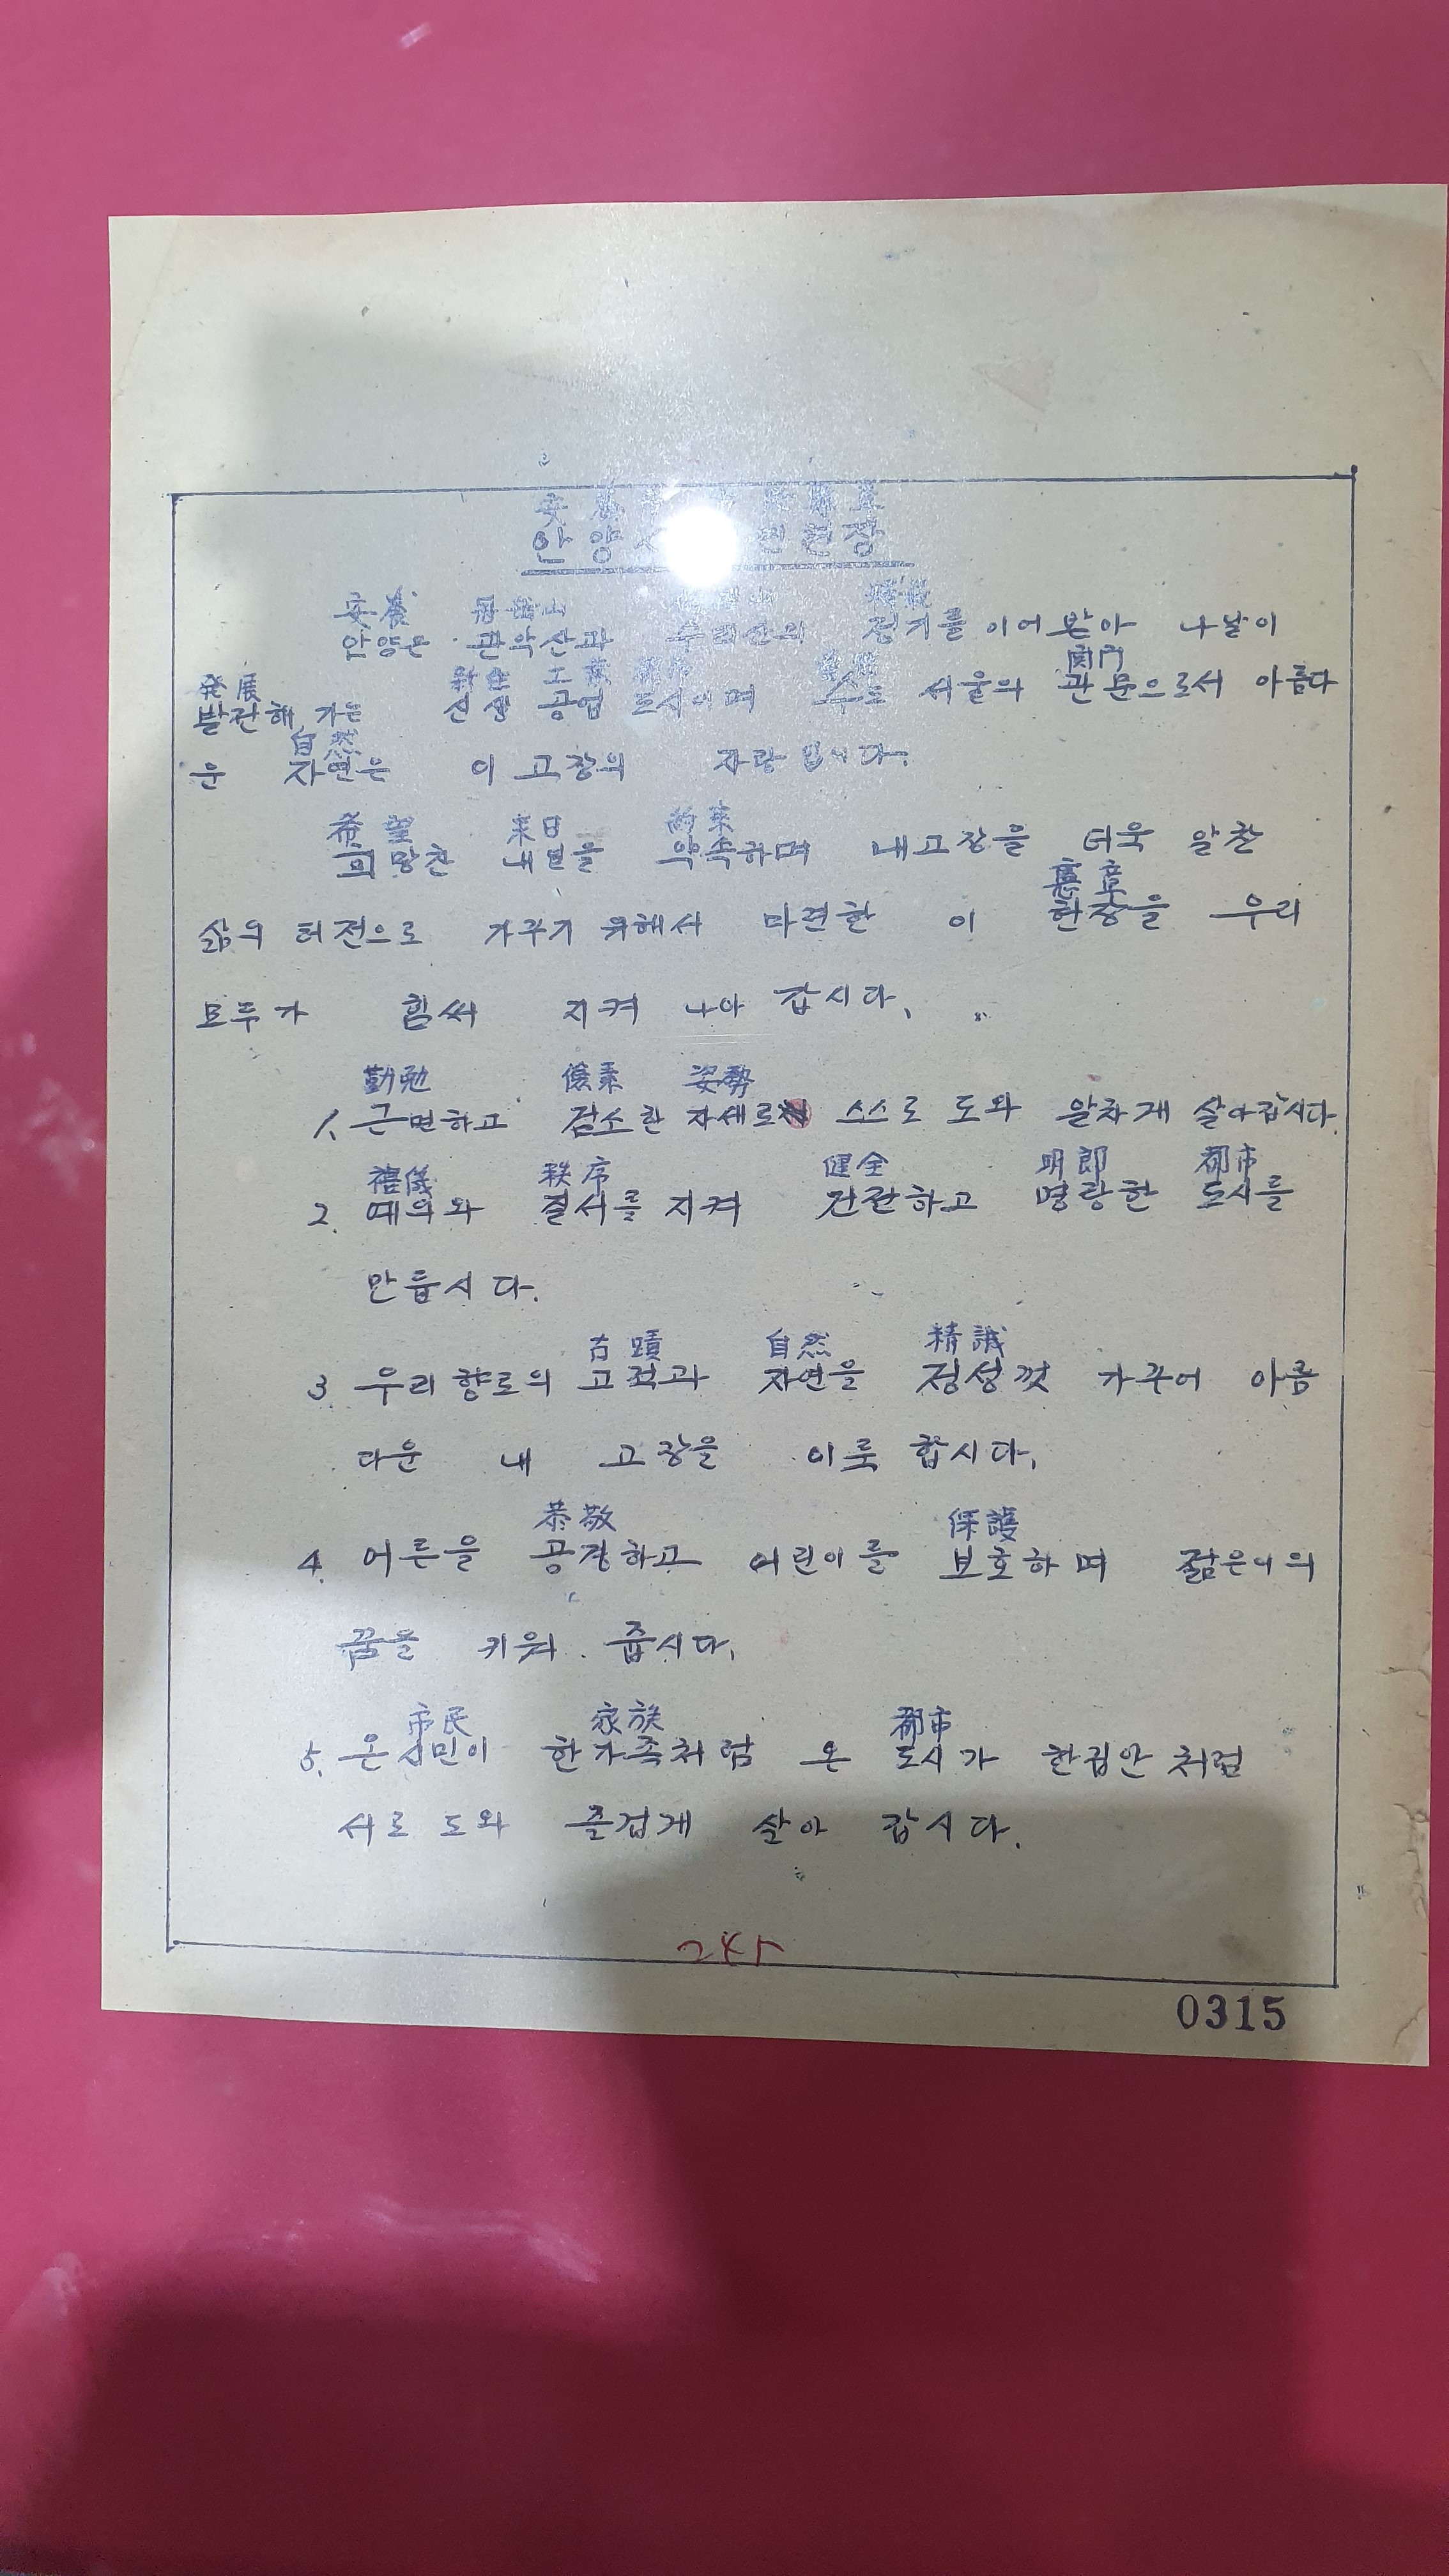 安養
안양 헌장
安養 冠岳山 精氣
안양은 관악산과 수리산의 정기를 이어받아 나날이
発展 新生 工業 関門
발전해 가는 신생 공업 도시이며 수도 서울의 관문으로서 아름다
自然
운 자연은 이 고장의 자랑입니다.
希望 来日 約束
희망찬 내일을 약속하며 내고장을 더욱 알찬
憲章
삶의 터전으로 가꾸기 위해서 마련한 이 헌장을 우리
모두가 힘써 지켜 나아 갑시다.
勤勉 儉素 姿勢
1. 근면하고 검소한 자세로 스스로 도와 알차게 살아갑시다.
禮儀 秩序 健全 明郞 都市
2. 예의와 질서를 지켜 건전하고 명랑한 도시를
만듭시다.
古蹟 自然 精誠
3. 우리향토의 고적과 자연을 정성껏 가꾸어 아름
다운 내 고장을 이룩 합시다.
恭敬 保護
4. 어른을 공경하고 어린이를 보호하며 젊은이의
꿈을 키워 줍시다.
市民 家族 都市
5. 온시민이 한가족처럼 온 도시가 한집안 처럼
서로 도와 즐겁게 살아 갑시다.
245
0315